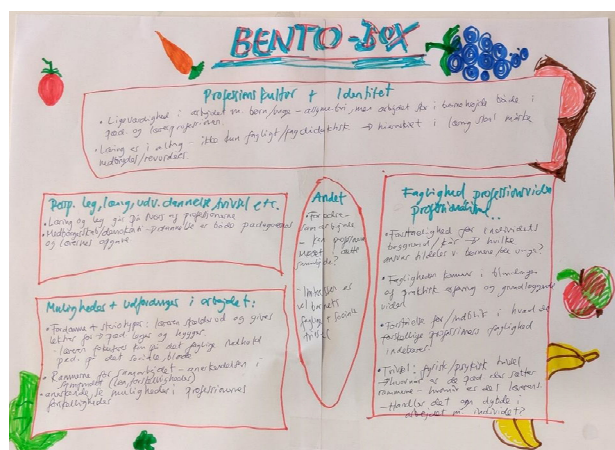 BENTO-BOX
Professionskultur + Identitet
• Ligeværdighed i arbejdet m. børn/unge - asymmetri, men arbejdet sker i børnehøjde både i
pæd og lærerprofessionen.
• Læring er i alting - ikke kun fagligt/fagdidaktisk → hierarkiet i læring skal måske
nedbrydes/revurderes.
Resp. leg, læring, udv. dannelse, trivsel etc.
• Læring og leg går på tværs af professionerne
• Medborgerskab/demokrati → dannelse er både pædagogernes
og lærernes opgave
Muligheder + udfordringer i arbejdet:
• Fordomme + stereotyper: læreren skælder ud og giver
lektier for → pæd leger og hygger.
- læreren fokuserer kun på det faglige indhold
pæd. på det sociale, bløde
• Rammerne for samarbejdet - anerkendelse i
(løn, forståelse, goder)
• anerkende/se muligheder i professionernes
forskelligheder
Andet
• Forældre-
samarbejde
- kan professionerne
dette
samarbejde?
af barnets
faglige + sociale
trivsel
Faglighed professionsviden
professionalisme..
• Forståelse for individets
baggrund/kår → hvilke
ansvar tildeles v. børnene/de unge?
• Fagligheden kommer i
af praktisk erfaring og grundlæggende
viden
• Forståelse for/indblik i hvad de
forskellige professioners faglighed
indebærer!
• Trivsel: fysisk/psykisk trivsel
- Hvornår er det pæd der sætter
rammerne - hvornår er det læreren?
- Handler det om dybde i
arbejdet m. individet?